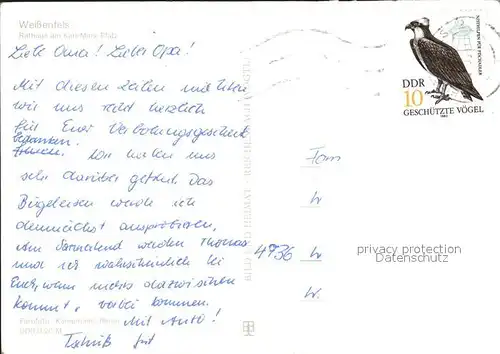 Weißenfels
Rathaus am Karl-Marx-Platz
Liebe Oma! Lieber Opa!
Mit diesen Zeilen möchten
wir uns recht herzlich
für Euer Verlobungsgeschenk
bedanken. Wir haben uns
sehr darüber gefreut. Das
Bügeleisen werde ich
demnächst ausprobieren.
Am Sonnabend werden Thomas
und ich wahrscheinlich bei
Euch, wenn nichts dazwischen
kommt, vorbei kommen.
Mit Auto!
Tschüß
Fam
4736
DDR
10
GESCHÜTZTE VÖGEL
privacy protection
Datenschutz